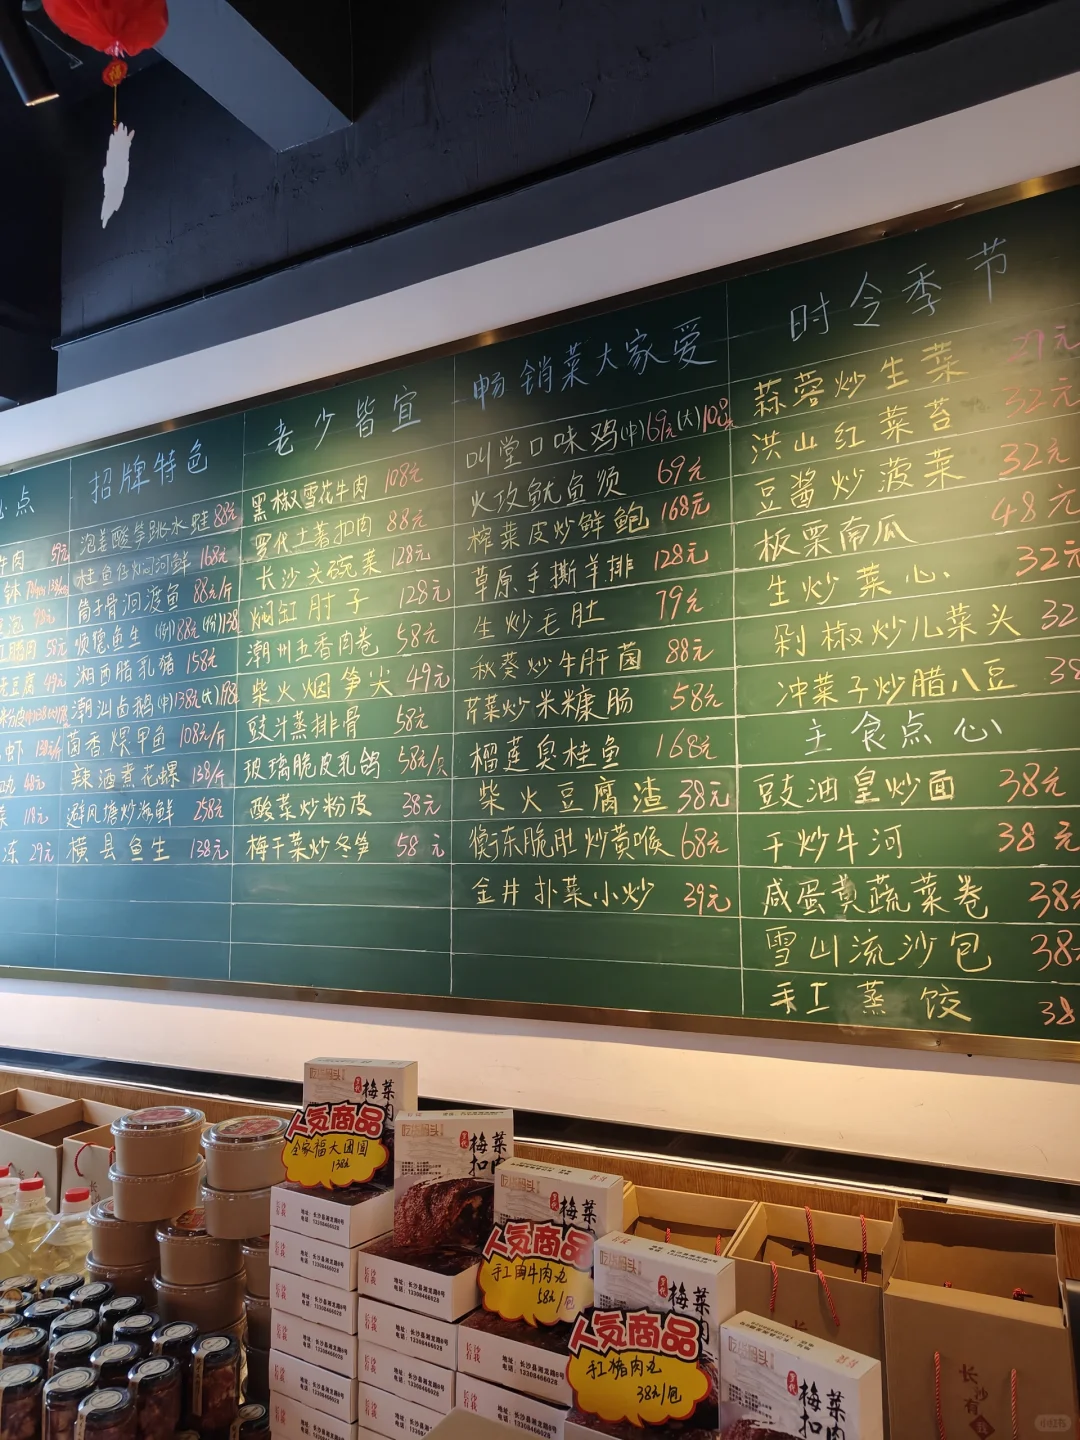 必点
牛肉 59元
钵
泡 98元
腊肉 58元
老豆腐 49元
粉皮
虾
48元
菜 118元
冻 29元
招牌特色
泡姜酸笋跳水蛙 88元
桂鱼仔焖河鲜 168元
筒子骨洄渡鱼 88元/斤
顺德鱼生
湘西腊乳猪 158元
潮汕卤鹅(中)138元(大)198
茴香煨甲鱼 108元/斤
辣酒煮花螺 138/斤
避风塘炒海鲜 258元
横县鱼生 138元
老少皆宜
黑椒雪花牛肉 108元
罗代土薯扣肉 88元
长沙头碗菜 128元
焖缸肘子 128元
潮州五香肉卷 58元
柴火烟笋尖 49元
豉汁蒸排骨 58元
玻璃脆皮乳鸽 58元/只
酸菜炒粉皮 38元
梅干菜炒冬笋 58元
畅销菜大家爱
叫堂口味鸡(中)69元(大)108元
火攻鱿鱼须 69元
榨菜皮炒鲜鲍 168元
草原手撕羊排 128元
生炒毛肚 79元
秋葵炒牛肝菌 88元
芹菜炒米糠肠 58元
榴莲臭桂鱼 168元
柴火豆腐渣 38元
衡东脆肚炒黄喉 68元
金井扑菜小炒 39元
时令季节
蒜蓉炒生菜 29元
洪山红菜苔 32元
豆酱炒菠菜 32元
板栗南瓜 48元
生炒菜心 32元
剁椒炒儿菜头 32
冲菜子炒腊八豆 38
主食点心
豉油皇炒面 38元
干炒牛河 38元
咸蛋黄蔬菜卷 38元
雪山流沙包 38元
手工蒸饺 38
人气商品
全家福大团圆
138元
人气商品
手工肉牛肉丸
58元/包
人气商品
手工猪肉丸
38元/包
梅菜扣肉
梅菜扣肉
梅菜
梅菜
梅菜扣
长沙有我
地址：长沙县湘龙路8号
电话：13308466028
长沙有
福
小红书